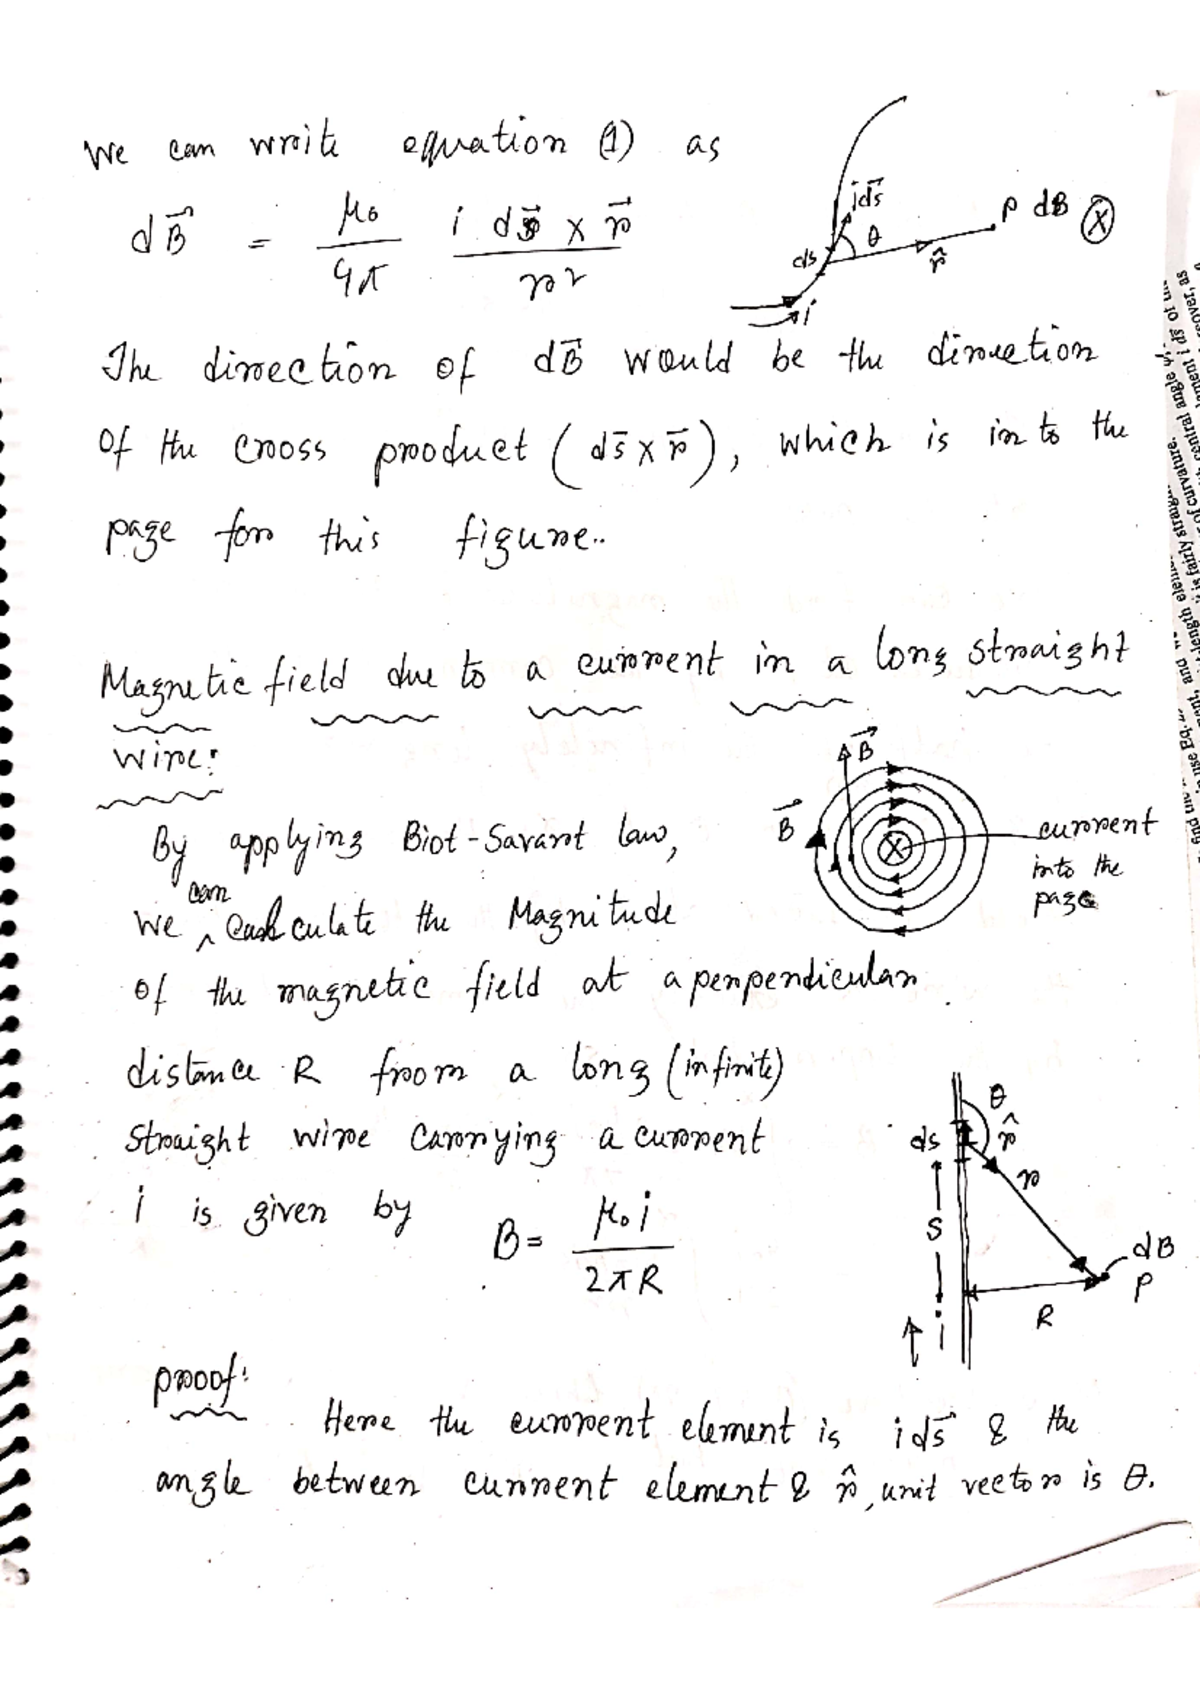 We can write equation (1) as
dB⃗ = μ₀/4π i ds⃗ × r⃗/r²
ids⃗
θ
ds
r̂
P dB ⊗
i
The direction of dB⃗ would be the direction
of the cross product (ds̄ × r̄), which is in to the
page for this figure..
Magnetic field due to a current in a long straight
wire:
B⃗
B⃗
current
into the
page
By applying Biot-Savart law,
we can calculate the Magnitude
of the magnetic field at a perpendicular
distance R from a long (infinite)
straight wire carrying a current
i is given by B = μ₀i/2πR
θ
ds
r̂
r
S
dB
P
R
i
proof:
Here the current element is ids⃗ & the
angle between current element & r̂, unit vector is θ.